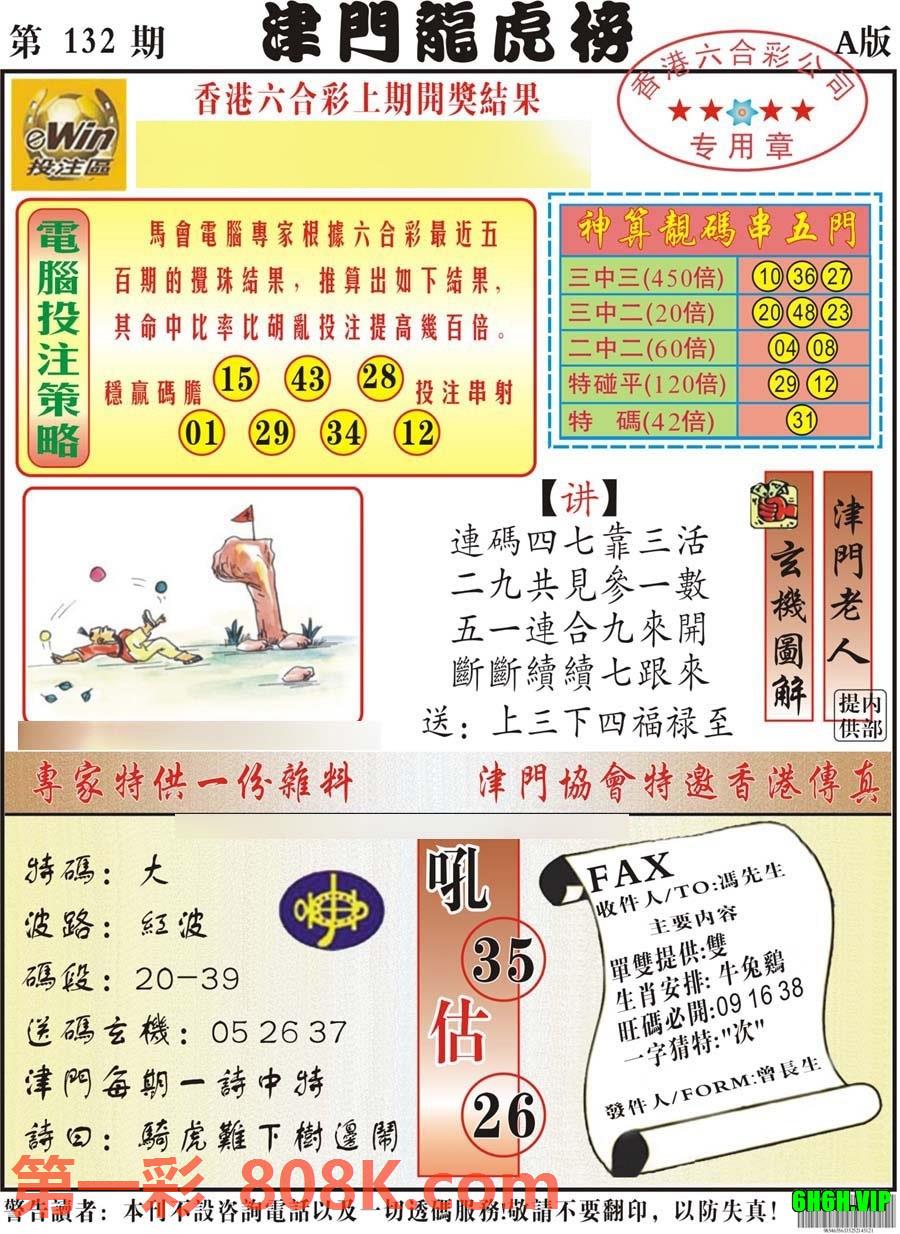 第 132 期
津門龍虎榜
A版
eWin
投注區
香港六合彩上期開獎結果
香港六合彩公司
专用章
電腦投注策略
馬會電腦專家根據六合彩最近五
百期的攪珠結果，推算出如下結果，
其命中比率比胡亂投注提高幾百倍。
穩贏碼膽 15 43 28 投注串射
01 29 34 12
神算靚碼串五門
三中三(450倍) 10 36 27
三中二(20倍) 20 48 23
二中二(60倍) 04 08
特碰平(120倍) 29 12
特 碼(42倍) 31
【讲】
連碼四七靠三活
二九共見參一數
五一連合九來開
斷斷續續七跟來
送：上三下四福禄至
玄機圖解
津門老人
内部提供
專家特供一份雜料
津門協會特邀香港傳真
特碼：大
波路：紅波
碼段：20-39
送碼玄機：05 26 37
津門每期一詩中特
詩曰：騎虎難下樹邊鬧
吼
35
估
26
FAX
收件人/TO:馮先生
主要内容
單雙提供:雙
生肖安排: 牛兔鷄
旺碼必開:09 16 38
一字猜特:"次"
發件人/FORM:曾長生
第一彩 808K.com
警告讀者：本刊不設咨詢電話以及一切透碼服務!敬請不要翻印，以防失真！
6H6H.VIP